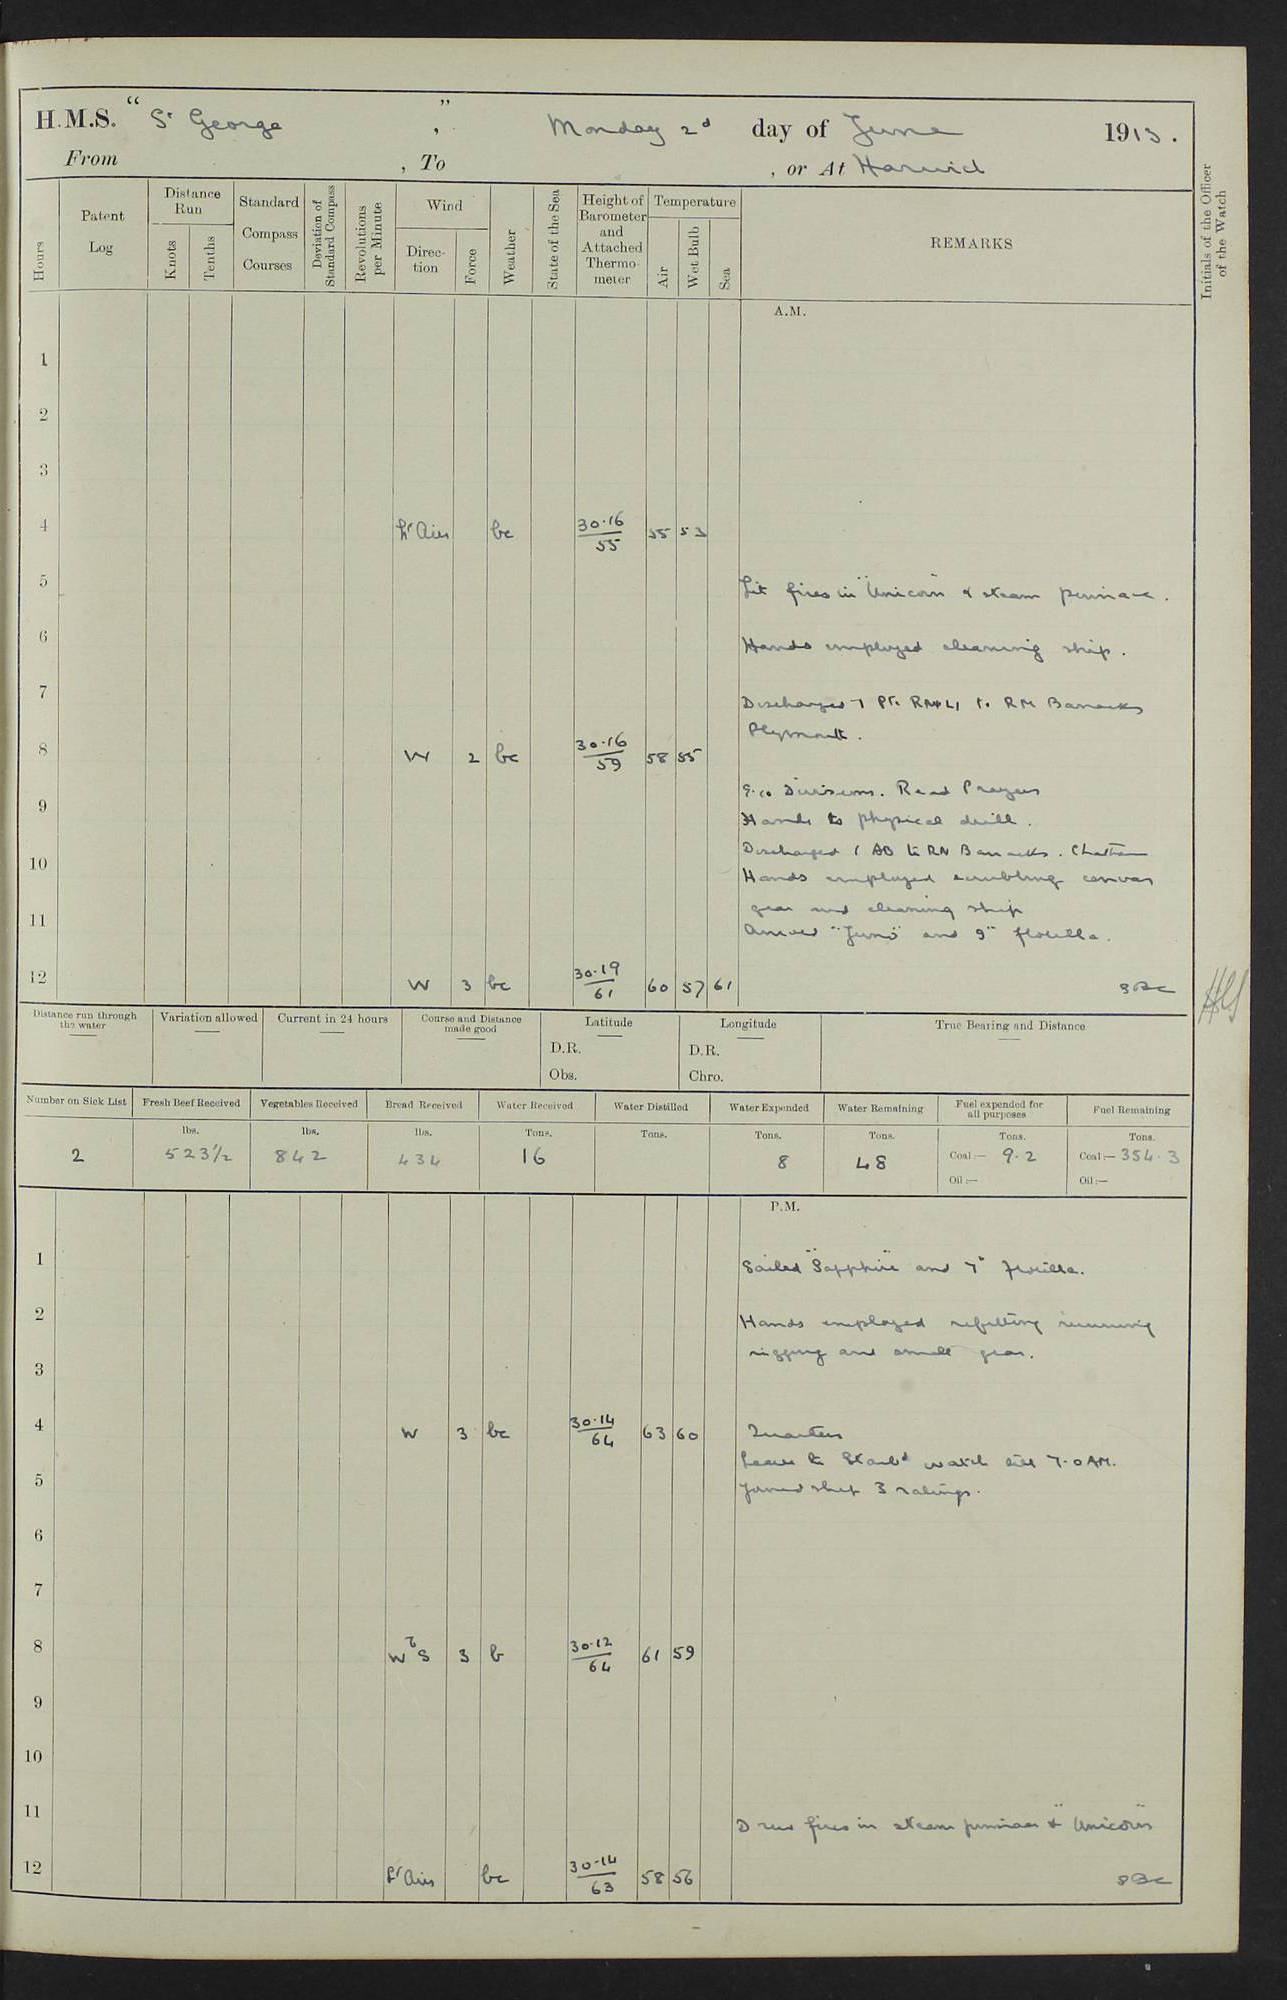 H.M.S. "St George", Monday 2d day of June 1913.
From , To , or At Harwich
Hours
Patent Log
Distance Run
Knots
Tenths
Standard Compass Courses
Deviation of Standard Compass
Revolutions per Minute
Wind
Direction
Force
Weather
State of the Sea
Height of Barometer and Attached Thermometer
Temperature
Air
Wet Bulb
Sea
REMARKS
Initials of the Officer of the Watch
A.M.
1
2
3
4 Lt Airs bc 30.16/55 55 53
5 Lit fires in "Unicorn" & steam pinnace.
6 Hands employed cleaning ship.
7 Discharged 7 Pte RMLI to RM Barracks
Plymouth.
8 W 2 bc 30.16/59 58 55
9.10 Divisions. Read Prayers
9 Hands to physical drill.
Discharged 1 AB to RN Barracks. Chatham
10 Hands employed scrubbing canvas
gear and cleaning ship
11 Arrived "Juno" and 9th flotilla.
12 W 3 bc 30.19/61 60 57 61
Distance run through the water
Variation allowed
Current in 24 hours
Course and Distance made good
Latitude
D.R.
Obs.
Longitude
D.R.
Chro.
True Bearing and Distance
Number on Sick List
2
Fresh Beef Received
lbs.
523 1/2
Vegetables Received
lbs.
842
Bread Received
lbs.
434
Water Received
Tons.
16
Water Distilled
Tons.
Water Expended
Tons.
8
Water Remaining
Tons.
48
Fuel expended for all purposes
Tons.
Coal:— 9.2
Oil:—
Fuel Remaining
Tons.
Coal:— 354.3
Oil:—
P.M.
1 Sailed "Sapphire" and 7th flotilla.
2 Hands employed refitting running
rigging and small gear.
3
4 W 3 bc 30.14/64 63 60 Quarters
Leave to Starbd watch till 7.0 AM.
5 Joined ship 3 ratings.
6
7
8 WbS 3 b 30.12/64 61 59
9
10
11 Drew fires in steam pinnace & "Unicorn"
12 Lt Airs bc 30.14/63 58 56